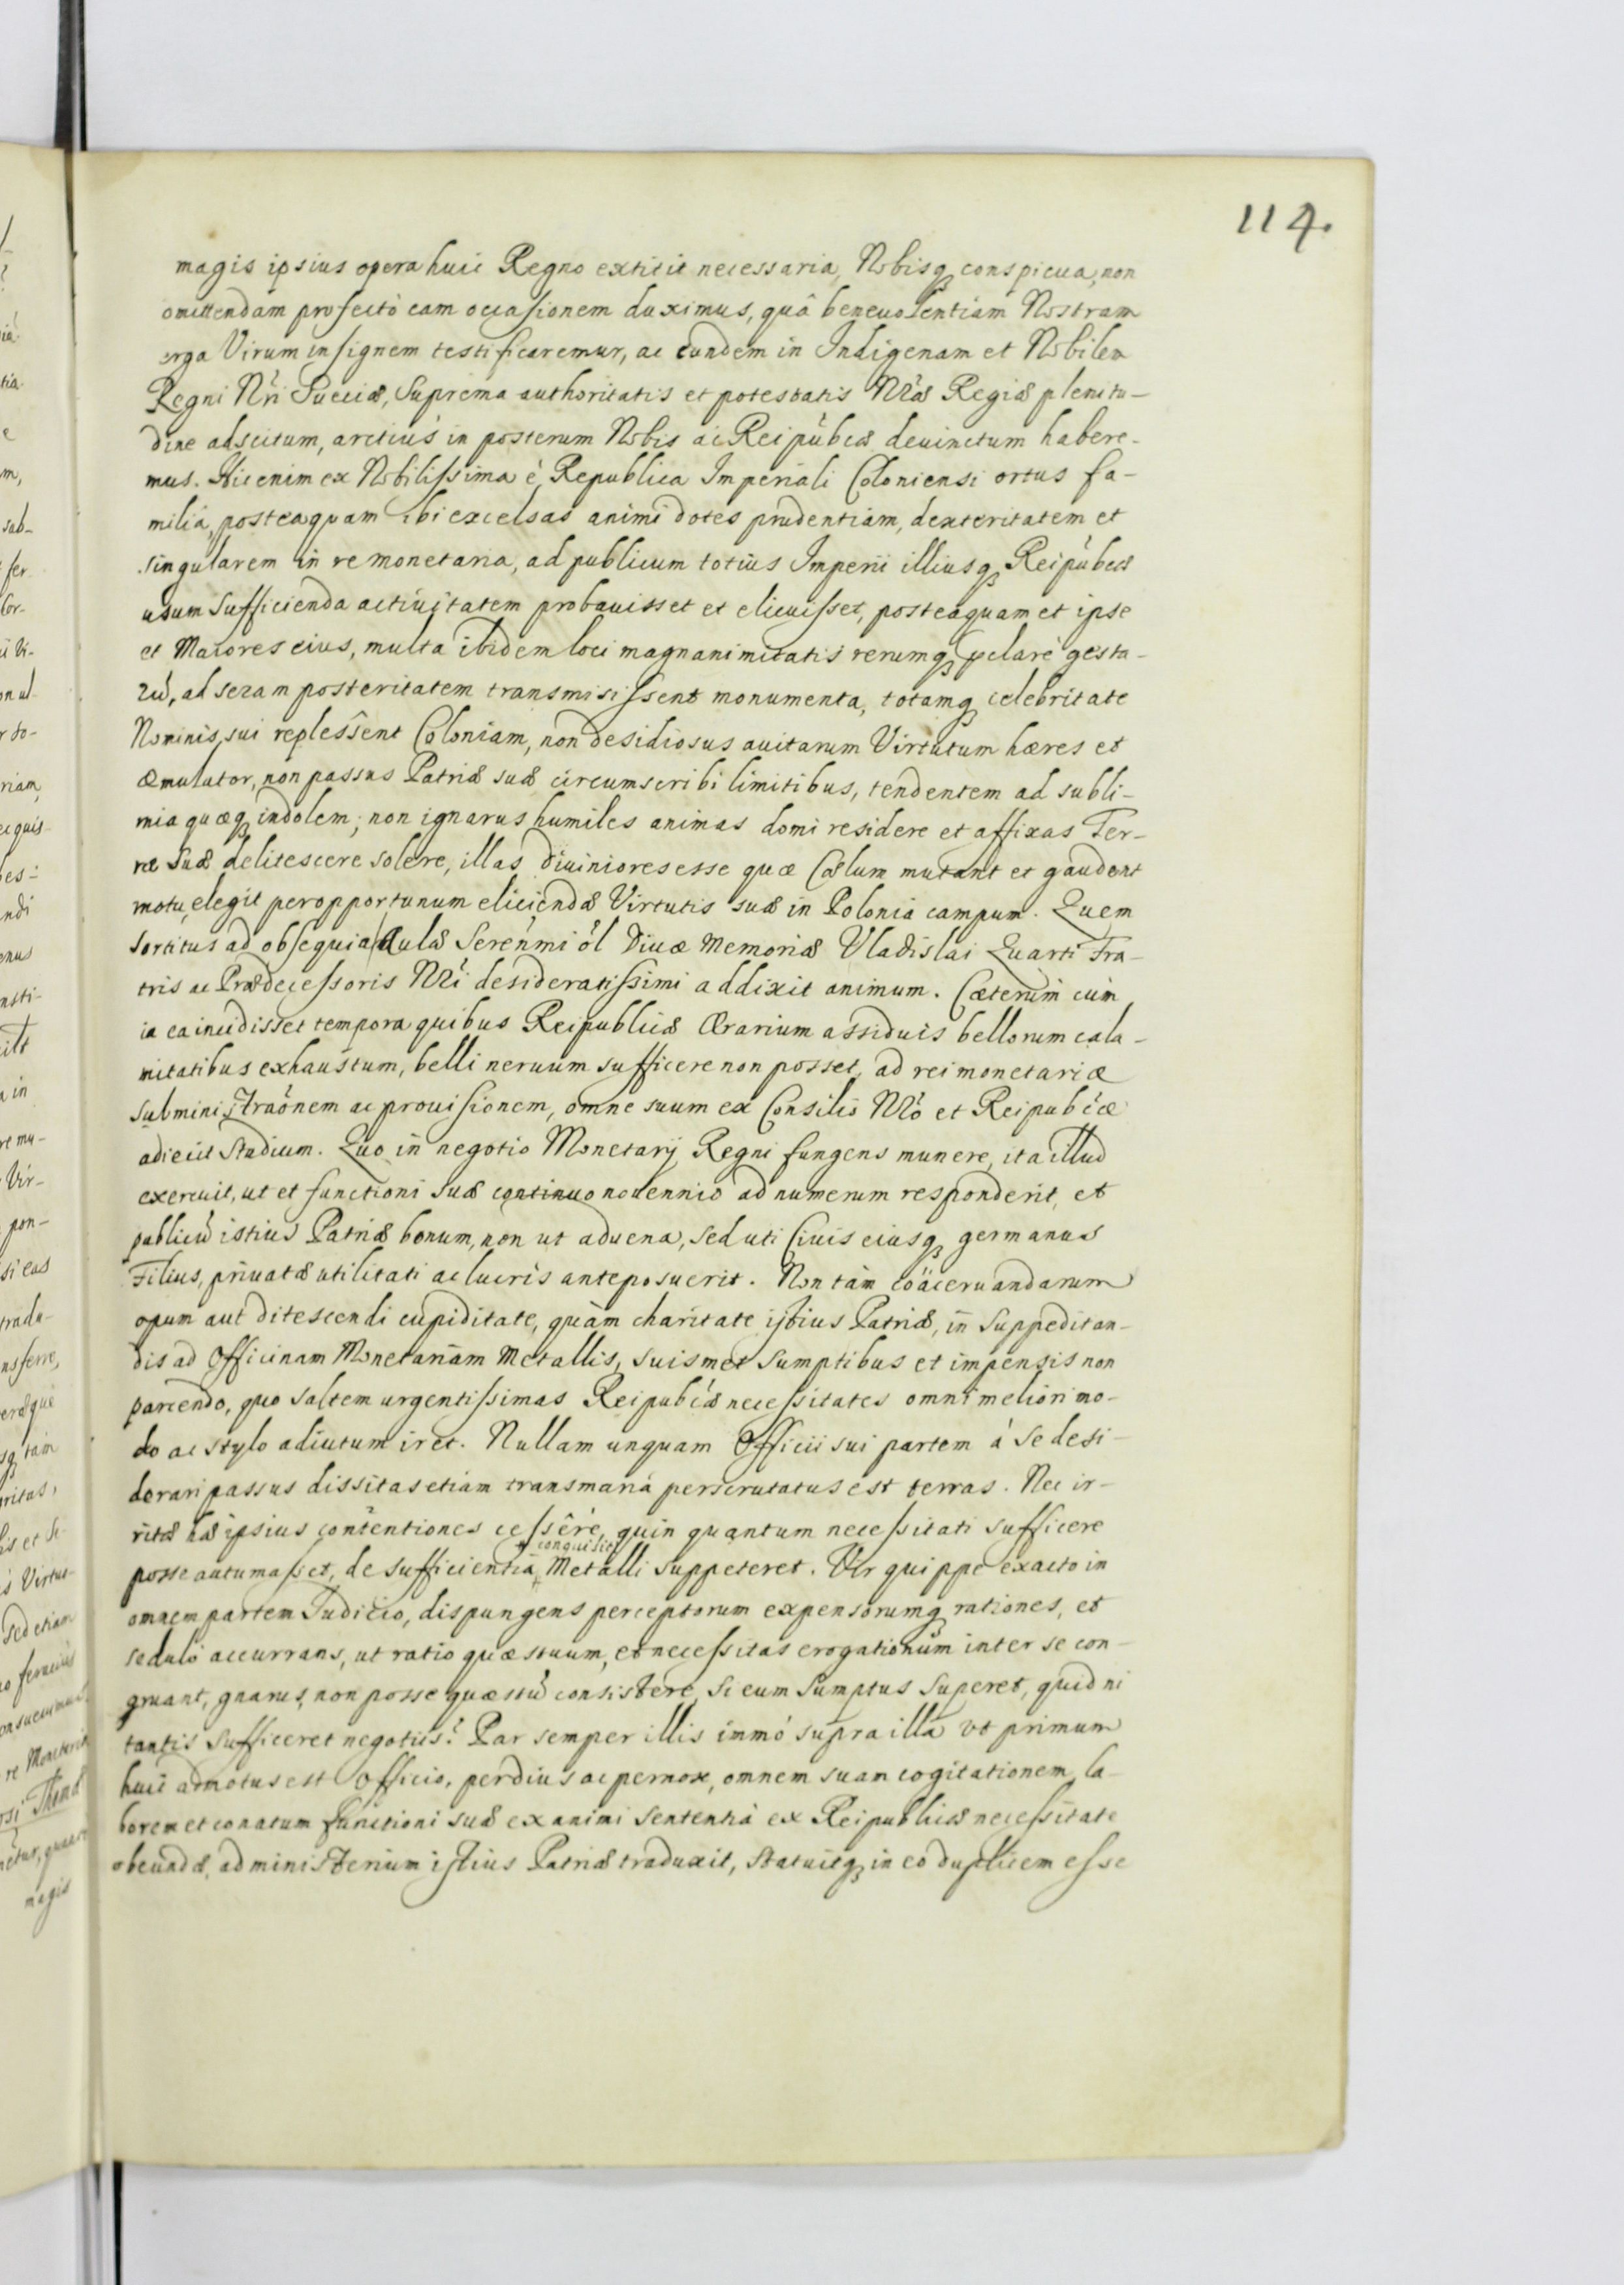 114.
magis ipsius opera huic Regno extitit necessaria, Nobisq conspicua, non
omittendam profectò eam occasionem duximus, quâ beneuolentiam Nostram
erga Virum insignem testificaremur, ac eundem in Indigenam et Nobilem
Regni Nri Sueciæ, Suprema authoritatis et potestatis Nræ Regiæ plenitu-
dine adscitum, arctius in posterum Nobis ac Reipubcæ deuinctum habere-
mus. Hic enim ex Nobilissima è Republica Imperiali Coloniensi ortus fa-
milia, posteaquam ibi excelsas animi dotes prudentiam, dexteritatem et
singularem in re monetaria, ad publicum totius Imperii illiusq Reipubcæ
usum sufficienda actiuitatem probauisset et elicuisset, posteaquam et ipse
et Maiores eius, multa ibidem loci magnanimitatis rerumq pclarè gesta-
rũ, ad seram posteritatem transmisissent monumenta, totamq celebritate
Nominis sui replessent Coloniam, non desidiosus auitarum Virtutum hæres et
æmulator, non passus Patriæ suæ circumscribi limitibus, tendentem ad subli-
mia quæq indolem; non ignarus humiles animas domi residere et affixas Ter-
ræ Suæ delitescere solere, illas diuiniores esse quæ Cælum mutant et gaudent
motu, elegit peropportunum eliciendæ Virtutis suæ in Polonia campum. Quem
Sortitus ad obsequia Aulæ Serenmi ol Diuæ Memoriæ Vladislai Quarti Fra-
tris ac Prædecessoris Nri desideratissimi addixit animum. Cæterum cum
ia ea incidisset tempora quibus Reipublicæ Ærarium assiduis bellorum cala-
mitatibus exhaustum, belli neruum sufficere non posset, ad rei monetariæ
subministraonem ac prouisionem, omne suum ex Consilio Nro et Reipubcæ
adiecit Studium. Quo in negotio Monetarij Regni fungens munere, ita illud
exercuit, ut et functioni Suæ continuo nouennio ad numerum responderit, et
publicũ istius Patriæ bonum, non ut aduena, sed uti Ciuis eiusq germanus
Filius, priuatæ utilitati ac lucris anteposuerit. Non tàm coäceruandarum
opum aut ditescendi cupiditate, quàm charitate istius Patriæ, in Suppeditan-
dis ad Officinam Monetariam Metallis, suismet Sumptibus et impensis non
parcendo, quo saltem urgentissimas Reipubcæ necessitates omni meliori mo-
do ac stylo adiutum iret. Nullam unquam Officii sui partem á Se desi-
derari passus dissitas etiam transmaria perscrutatus est terras. Nec ir-
ritæ hæ ipsius contentiones cessêre, quin quantum necessitati sufficere
+ conquisiti
posse autumasset, de sufficientia + Metalli suppeteret. Vir quippe exacto in
omnem partem Iudicio, dispungens perceptorum expensorumq rationes, et
sedulò accurrans, ut ratio quæstuum, et necessitas erogationum inter se con-
gruant, gnarus non posse quæstũ consistere, Si eum Sumptus Superet, quid ni
tantis sufficeret negotiis? Par semper illis immò supra illa vt primum
huic admotus est Officio, perdius ac pernox, omnem suam cogitationem, la-
borem et conatum functioni suæ ex animi Sententia ex Reipublicæ necessitate
obeundæ, ad ministerium istius Patriæ traduxit, Statuitq in eo duplicem esse